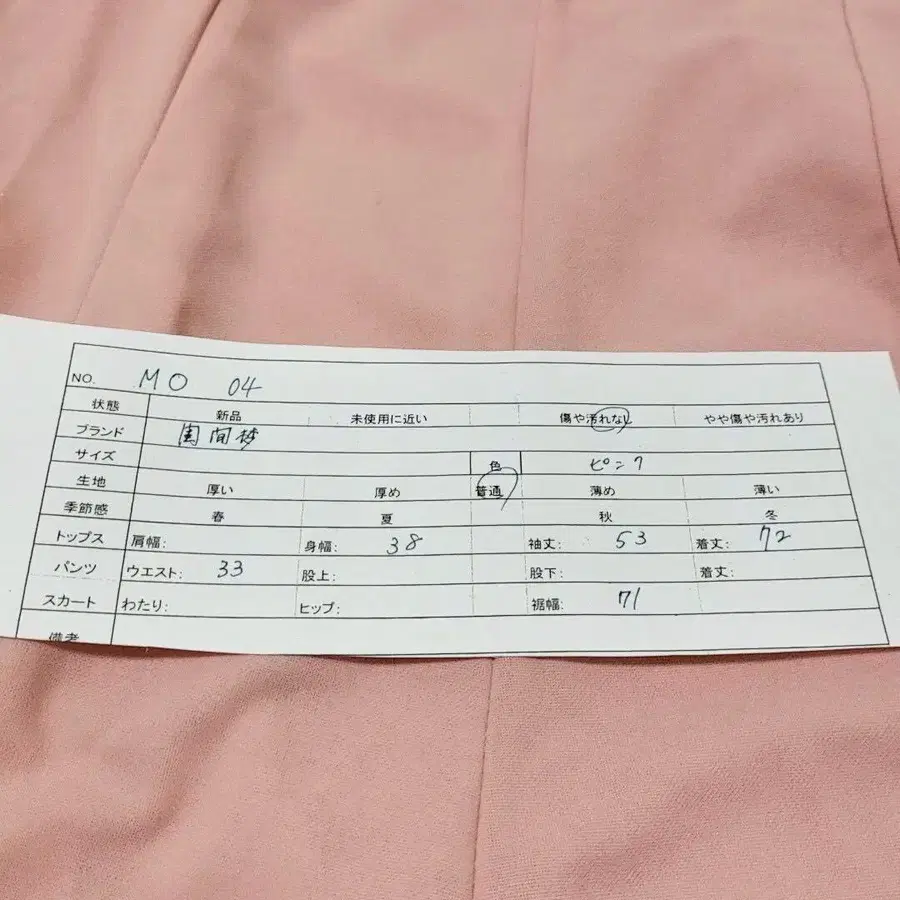 NO. MO 04
状態 新品 未使用に近い 傷や汚れなし やや傷や汚れあり
ブランド
サイズ 色 ピンク
生地 厚い 厚め 普通 薄め 薄い
季節感 春 夏 秋 冬
トップス 肩幅: 身幅: 38 袖丈: 53 着丈: 72
パンツ ウエスト: 33 股上: 股下: 着丈:
スカート わたり: ヒップ: 裾幅: 71
備考